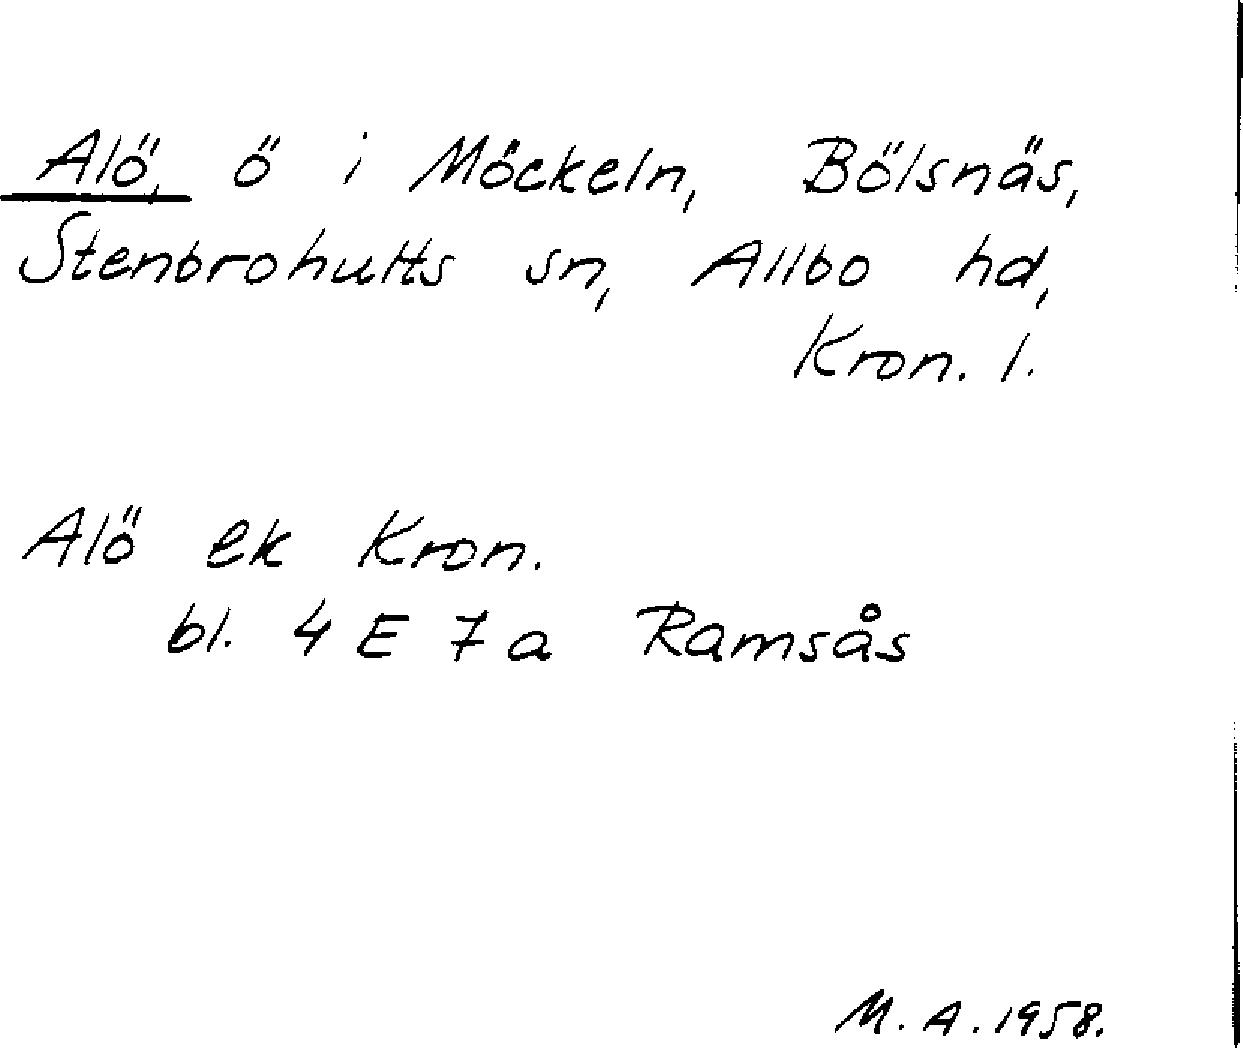 Alö, ö i Möckeln, Bölsnäs,
Stenbrohults sn, Allbo hd,
Kron. l.
Alö ek Kron.
bl. 4 E 7 a Ramsås
M. A. 1958.